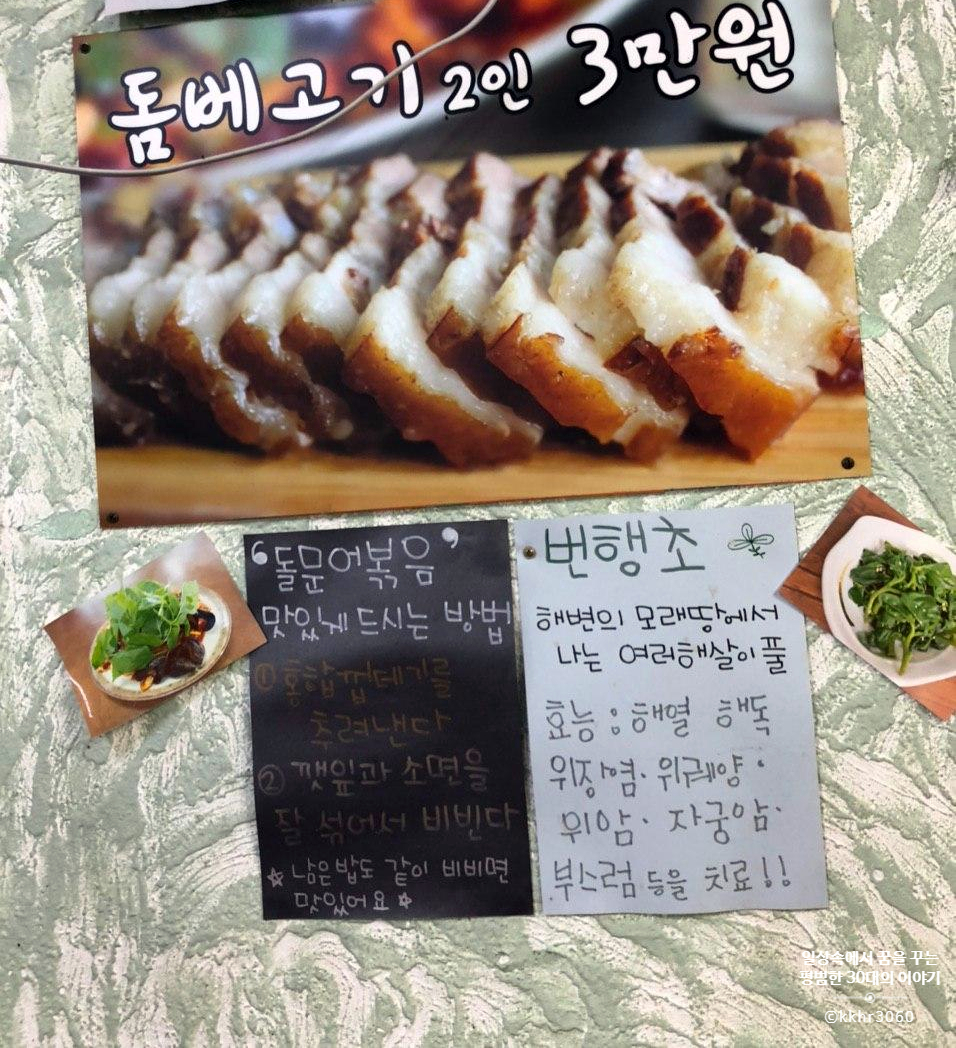 돔베고기 2인 3만원
‘돌문어볶음’
맛있게 드시는 방법
① 홍합껍데기를
추려낸다
② 깻잎과 소면을
잘 섞어서 비빈다
☆ 남은밥도 같이 비비면
맛있어요☆
번행초
해변의 모래땅에서
나는 여러해살이풀
효능 : 해열 해독
위장염· 위궤양·
위암· 자궁암·
부스럼 등을 치료!!
일상속에서 꿈을 꾸는
평범한 30대의 이야기
©kkhr3060